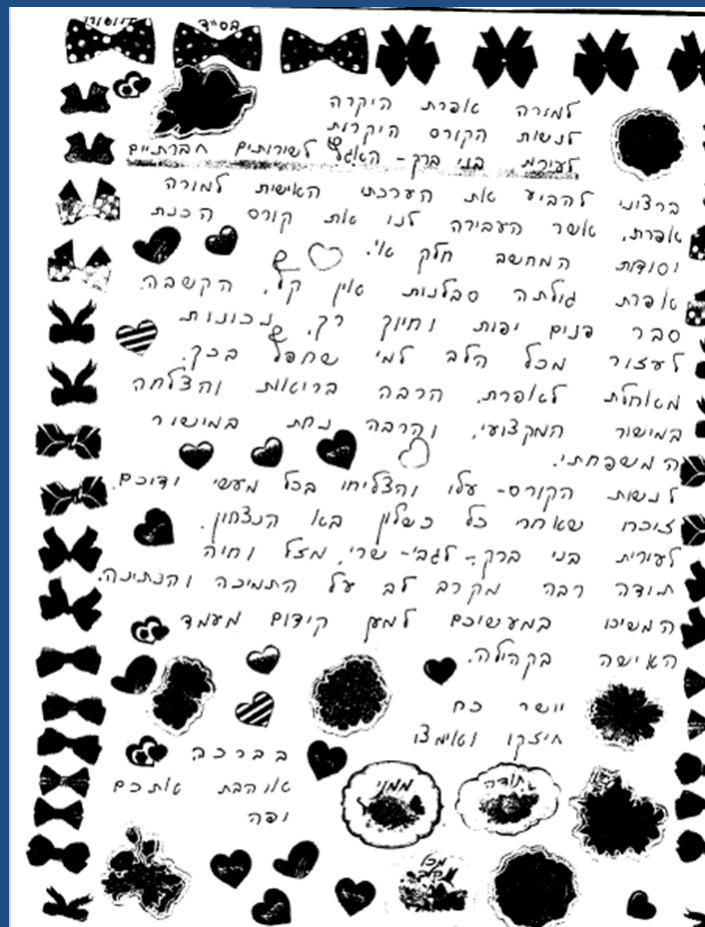 בס"ד
למורה אפרת היקרה
לנשות הקורס היקרות
לעירית בני ברק - האגף לשירותים חברתיים
ברצוני להביע את הערכתי האישית למורה
אפרת, אשר העבירה לנו את קורס הכנת
וסודות המחשב חלק א'.
אפרת גילתה סבלנות אין קץ, הקשבה,
סבר פנים יפות וחיוך רק, נכונות
לעזור מכל הלב למי שחפץ בכך.
מאחלת לאפרת, הרבה בריאות והצלחה
במישור המקצועי, והרבה נחת במישור
המשפחתי.
לנשות הקורס - עלו והצליחו בכל מעשי ידיכם.
זיכרו שאחרי כל כשלון בא הנצחון.
לעירית בני ברק - לגבי - שרי, מזל וחיה
תודה רבה מקרב לב על התמיכה והנתינה.
המשיכו במעשיכם למען קידום מעמד
האישה בקהילה.
יושר כח
חיזקו ואימצו
בברכה
אוהבת אתכם
יפה
תודה
ממני